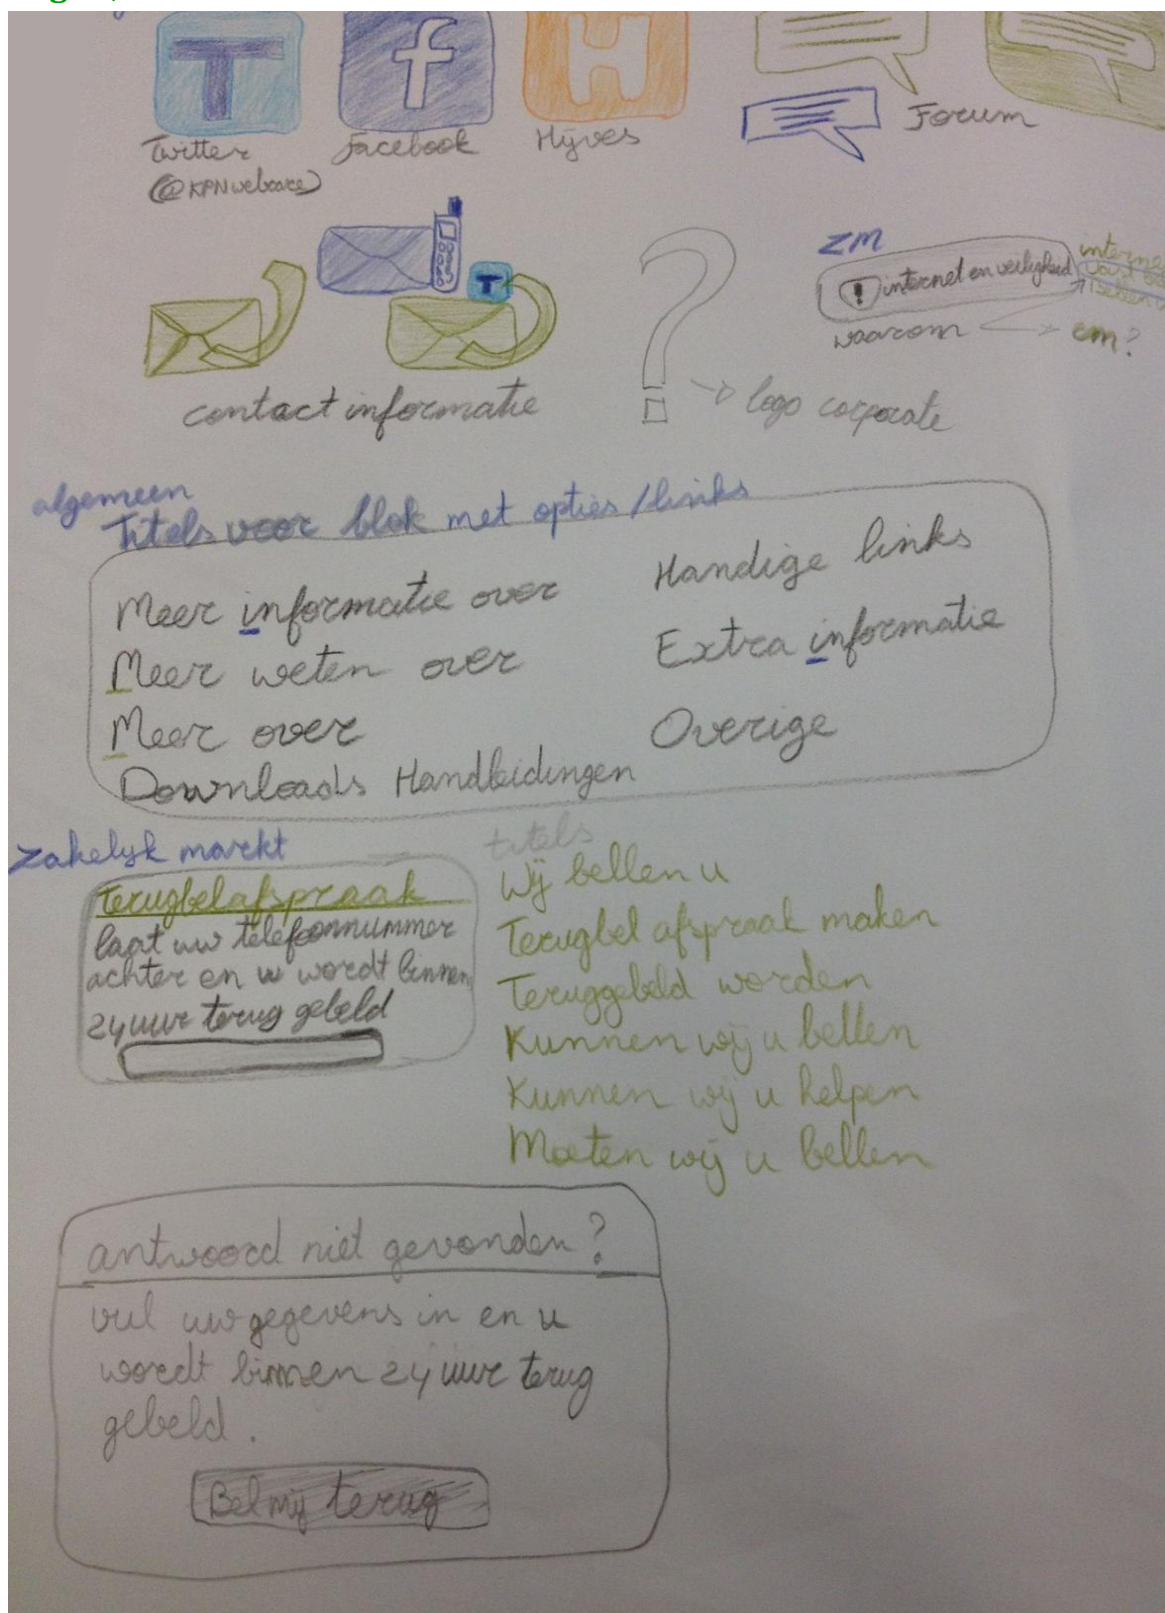 T f H
Twitter Facebook Hyves Forum
(@KPNwebcare)
ZM
! internet en veiligheid
waarom cm?
T
contact informatie
? logo corporate
algemeen
Titels voor blok met opties / links
Meer informatie over
Meer weten over
Meer over
Downloads Handleidingen
Handige links
Extra informatie
Overige
Zakelijk markt
Terugbelafspraak
laat uw telefoonnummer
achter en u wordt binnen
24 uur terug gebeld
titels
Wij bellen u
Terugbel afspraak maken
Teruggebeld worden
Kunnen wij u bellen
Kunnen wij u helpen
Moeten wij u bellen
antwoord niet gevonden?
vul uw gegevens in en u
wordt binnen 24 uur terug
gebeld.
Bel mij terug